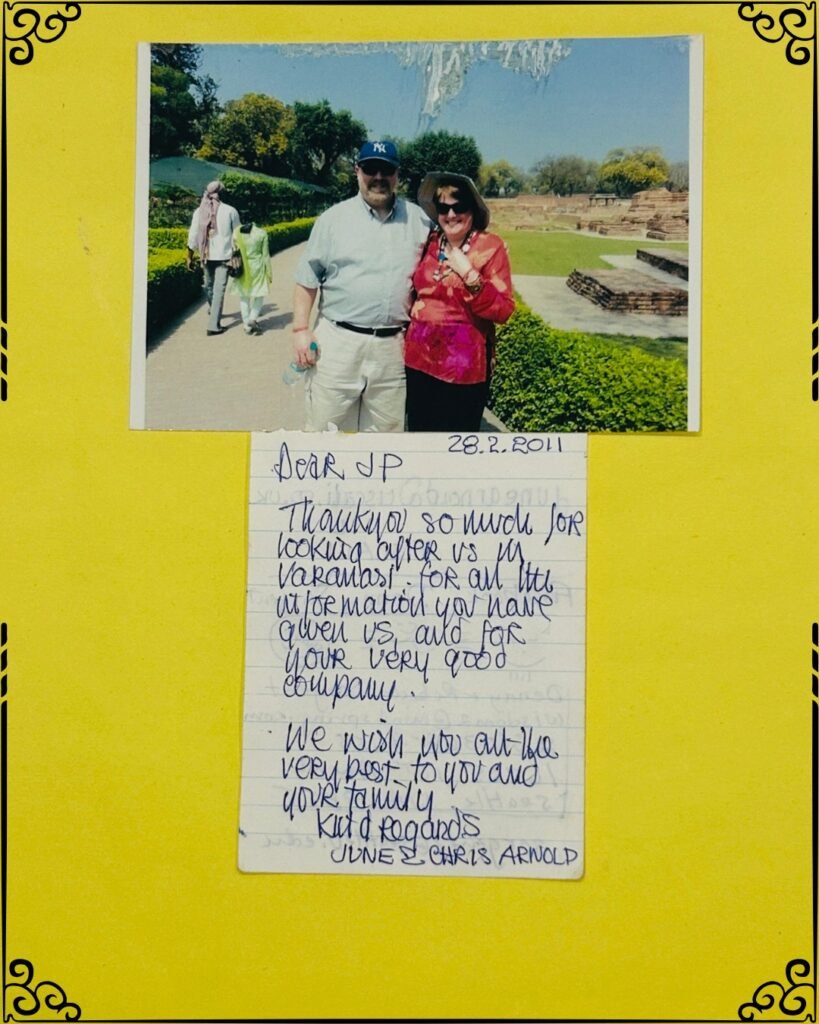 NY
28.2.2011
Dear JP
Thankyou so much for
looking after us in
Varanasi. for all the
information you have
given us, and for
your very good
company.
We wish you all the
very best to you and
your family.
Kind regards
JUNE & CHRIS ARNOLD